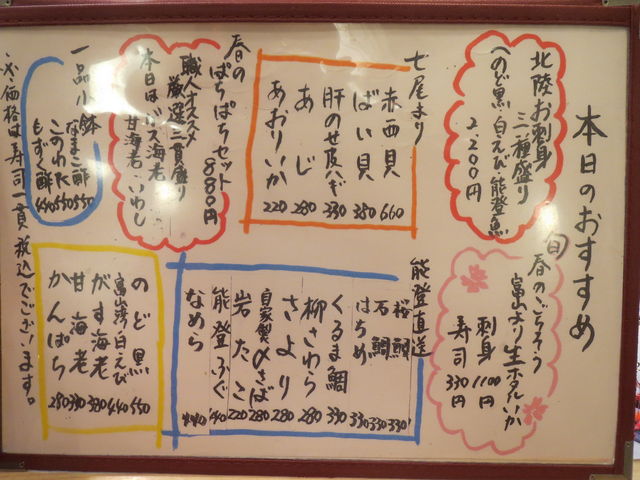 本日のおすすめ
北陸お刺身
三種盛り
(のど黒 白えび 能登魚
2,200円
旬
春のごちそう
富山より生ホタルいか
刺身 1100円
寿司 330円
七尾より
赤西貝 660
ばい貝 380
肝のせ皮ハギ 330
あじ 280
あおりいか 220
春の
ぱちぱちセット
880円
職人オススメ
厳選二貫盛り
本日はガス海老
甘海老・いわし
一品小鉢
なまこ酢 550
このわた 550
もずく酢 440
能登直送
桜鯛 330
石鯛 330
はちめ 330
くるま鯛 330
柳さわら 280
さより 280
自家製〆さば 280
岩たこ 220
能登ふぐ 440
なめら 440
のど黒 550
富山湾白えび 440
がす海老 380
甘海老 330
かんぱち 280
※価格は寿司一貫税込でございます。